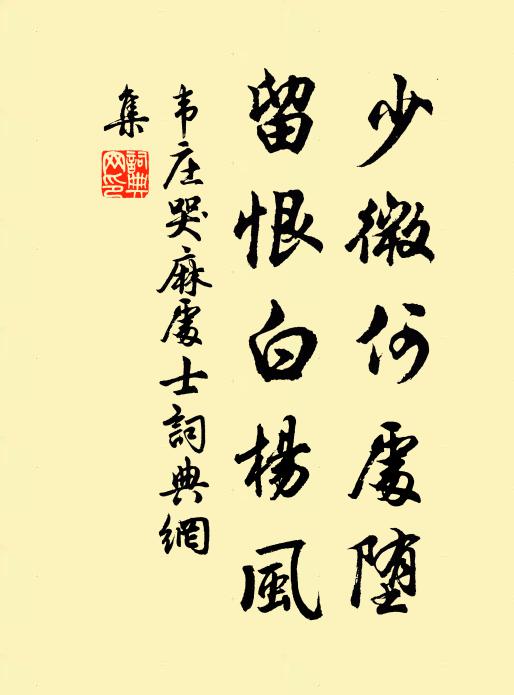 少微何處堕
留恨白楊風
韦庄哭麻處士詞典網
集
詞典
网印